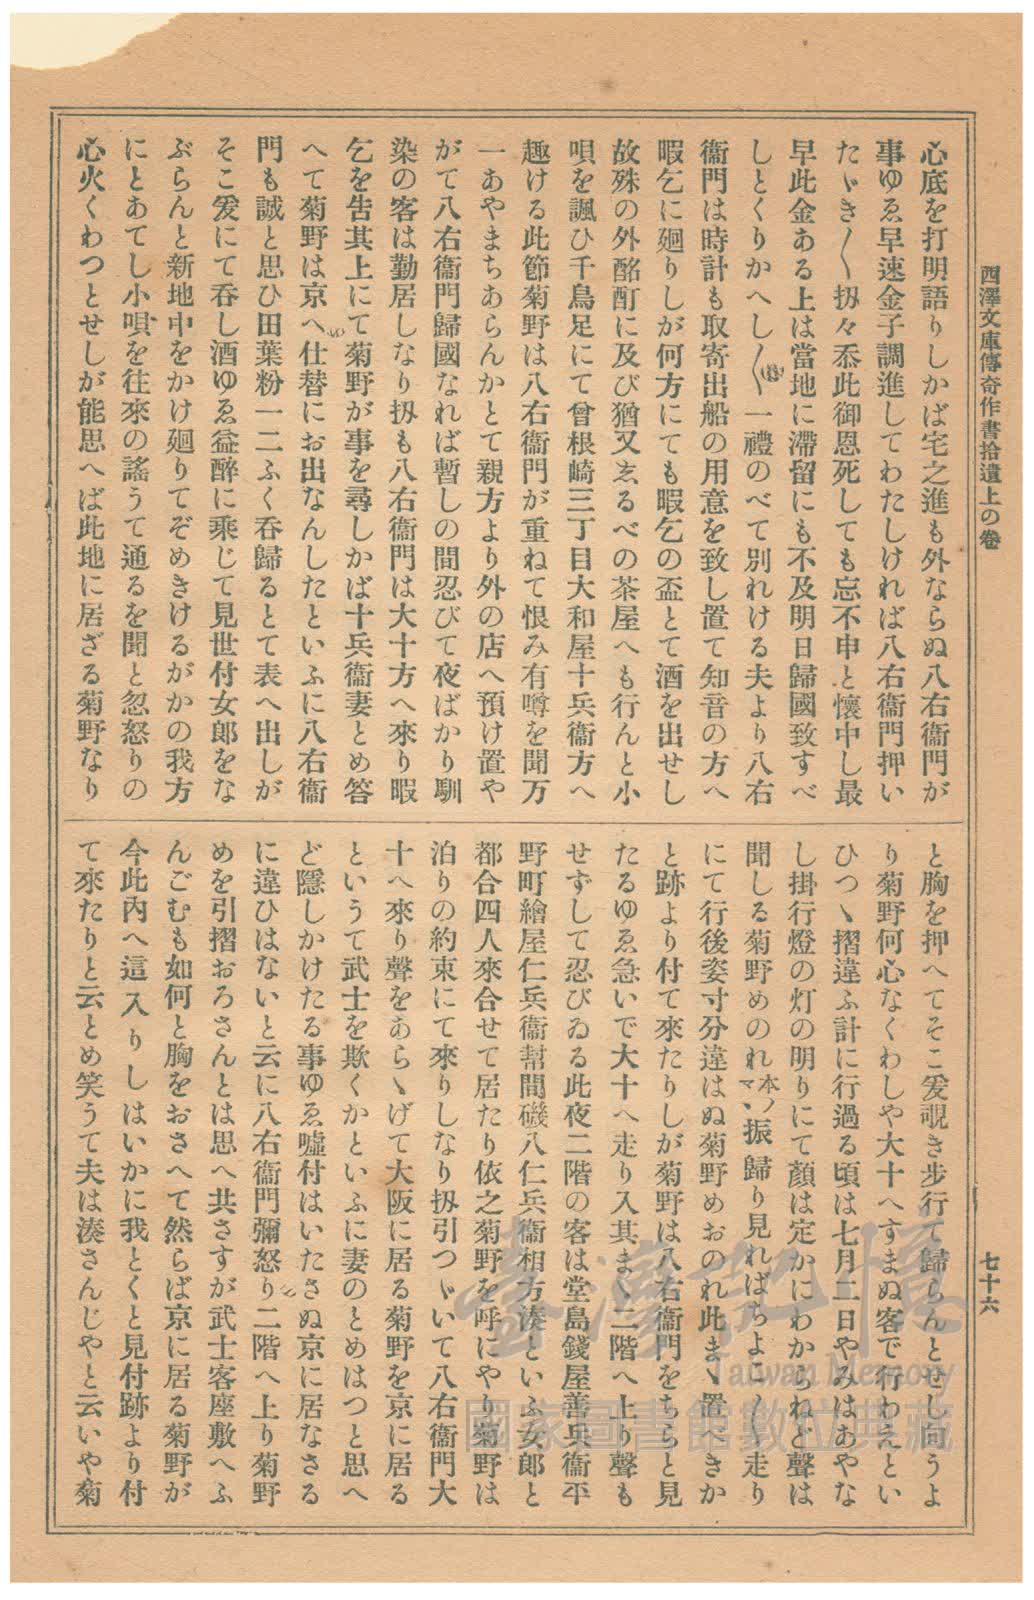 西澤文庫傳奇作書拾遺上の卷
七十六
心底を打明語りしかば宅之進も外ならぬ八右衞門が
事ゆゑ早速金子調進してわたしければ八右衞門押い
たゞき〱扨々忝此御恩死しても忘不申と懷中し最
早此金ある上は當地に滯留にも不及明日歸國致すべ
しとくりかへし〱一禮のべて別れける夫より八右
衞門は時計も取寄出船の用意を致し置て知音の方へ
暇乞に廻りしが何方にても暇乞の盃とて酒を出せし
故殊の外酩酊に及び猶又ゑるべの茶屋へも行んと小
唄を諷ひ千鳥足にて曾根崎三丁目大和屋十兵衞方へ
趣ける此節菊野は八右衞門が重ねて恨み有噂を聞万
一あやまちあらんかとて親方より外の店へ預け置や
がて八右衞門歸國なれば暫しの間忍びて夜ばかり馴
染の客は勤居しなり扨も八右衞門は大十方へ來り暇
乞を告其上にて菊野が事を尋しかば十兵衞妻とめ答
へて菊野は京へ仕替にお出なんしたといふに八右衞
門も誠と思ひ田葉粉一二ふく呑歸るとて表へ出しが
そこ爰にて呑し酒ゆゑ益醉に乘じて見世付女郎をな
ぶらんと新地中をかけ廻りてぞめきけるがかの我方
にとあてし小唄を往來の謠うて通るを聞と忽怒りの
心火くわつとせしが能思へば此地に居ざる菊野なり
と胸を押へてそこ爰覗き步行て歸らんとせし向うよ
り菊野何心なくわしや大十へすまぬ客で行わえとい
ひつゝ摺違ふ計に行過る頃は七月二日やみはあやな
し掛行燈の灯の明りにて顏は定かにわからねど聲は
聞しる菊野めのれ本ノマヽ振歸り見ればちよこ〱走り
にて行後姿寸分違はぬ菊野めおのれ此まゝ置べきか
と跡より付て來たりしが菊野は八右衞門をちらと見
たるゆゑ急いで大十へ走り入其まゝ二階へ上り聲も
せずして忍びゐる此夜二階の客は堂島錢屋善兵衞平
野町繪屋仁兵衞幇間磯八仁兵衞相方湊といふ女郎と
都合四人來合せて居たり依之菊野を呼にやり菊野は
泊りの約束にて來りしなり扨引つゞいて八右衞門大
十へ來り聲をあらゝげて大阪に居る菊野を京に居る
というて武士を欺くかといふに妻のとめはつと思へ
ど隱しかけたる事ゆゑ噓付はいたさぬ京に居なさる
に違ひはないと云に八右衞門彌怒り二階へ上り菊野
めを引摺おろさんとは思へ共さすが武士客座敷へふ
んごむも如何と胸をおさへて然らば京に居る菊野が
今此內へ這入りしはいかに我とくと見付跡より付
て來たりと云とめ笑うて夫は湊さんじやと云いや菊
臺灣記憶
Taiwan Memory
國家圖書館數位典藏